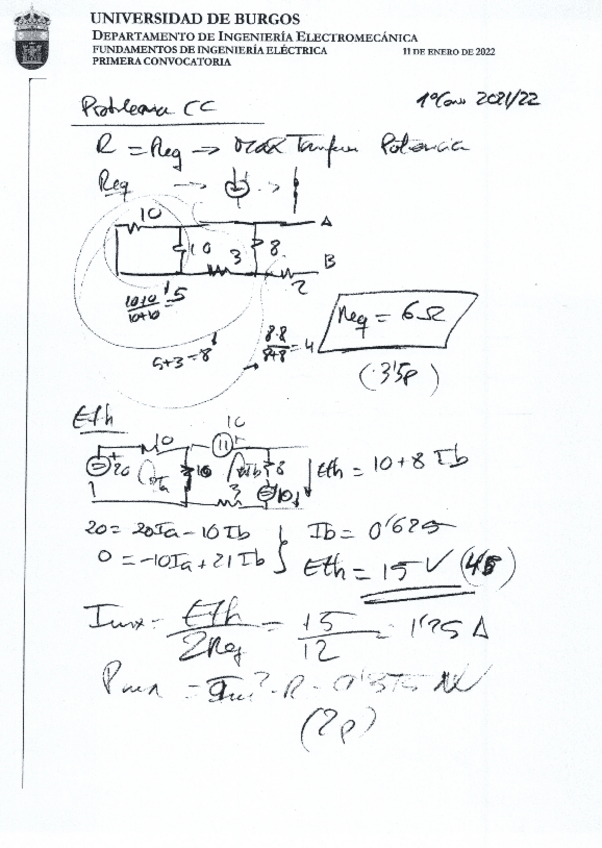 UNIVERSIDAD DE BURGOS
DEPARTAMENTO DE INGENIERÍA ELECTROMECÁNICA
FUNDAMENTOS DE INGENIERÍA ELÉCTRICA 11 DE ENERO DE 2022
PRIMERA CONVOCATORIA
Problema CC 1º 2021/22
R = Req → Potencia
Req → →
10 A
10 3 8 B
2
10·10/10+10 = 5
5+3=8
8·8/8+8 = 4
Req = 6Ω
(3'5p)
Eth
10 10
20 Ia 10 Ib 8 Eth = 10+8 Ib
3 10
20 = 20Ia - 10 Ib Ib = 0'625
0 = -10Ia + 21 Ib Eth = 15 V
= Eth/2Req = 15/12 = 1'25 A
(2p)